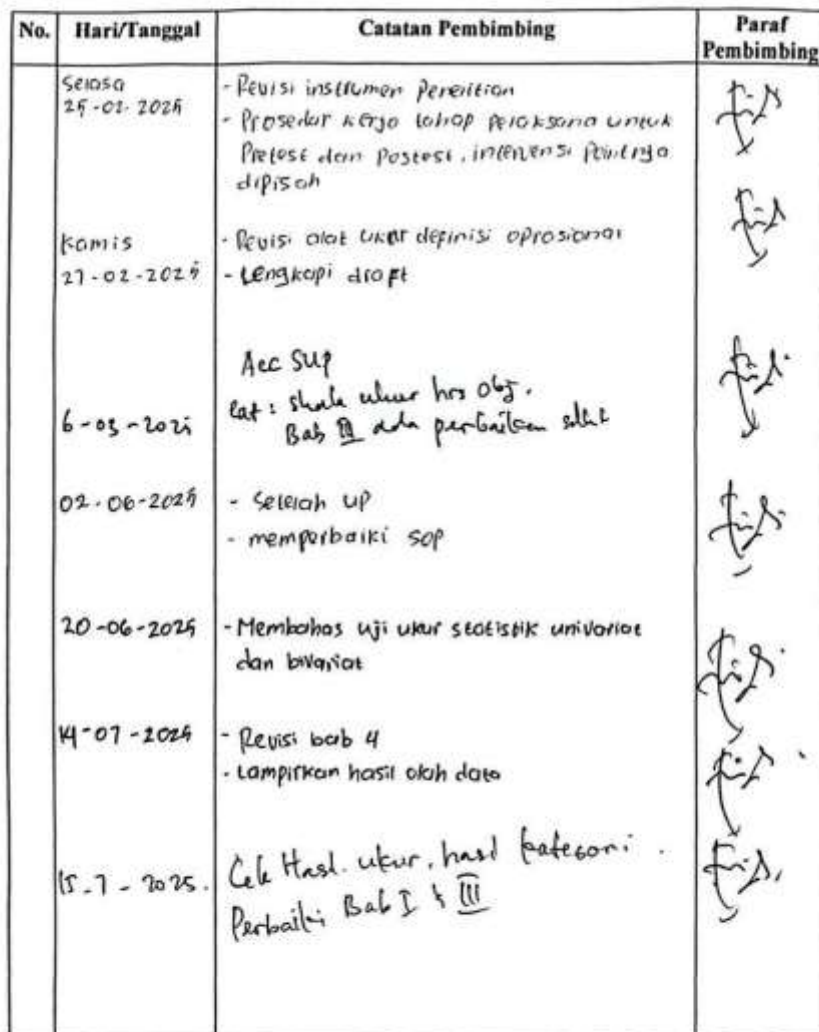 No. Hari/Tanggal Catatan Pembimbing Paraf
Pembimbing
Selasa
25-02-2025
- Revisi instrumen penelitian
- Prosedur kerja tahap pelaksana untuk
Pretest dan Postest, intervensi Pointnya
dipisah
Kamis
27-02-2025
- Revisi alat ukur definisi oprasional
- Lengkapi draft
6-03-2025
Acc SUP
Cat: Skala ukur hrs obj.
Bab III ada perbaikan
02-06-2025
- Setelah UP
- memperbaiki SOP
20-06-2025
- Membahas uji ukur statistik univariat
dan bivariat
14-07-2025
- Revisi bab 4
- Lampirkan hasil olah data
15-7-2025.
Cek Hasl. ukur, hasl kategori.
Perbaiki Bab I & III